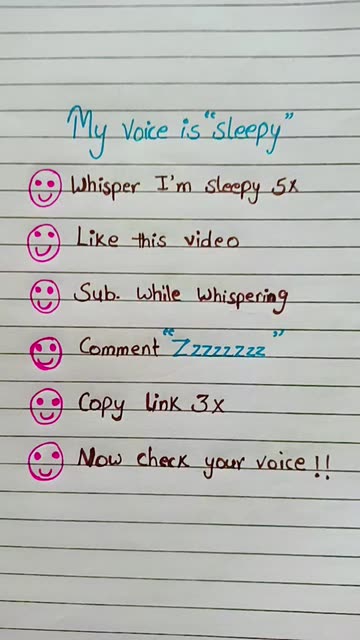 My Voice is "sleepy"
Whisper I'm sleepy 5x
Like this video
Sub. while whispering
Comment "Zzzzzzzz"
Copy link 3x
Now check your voice !!